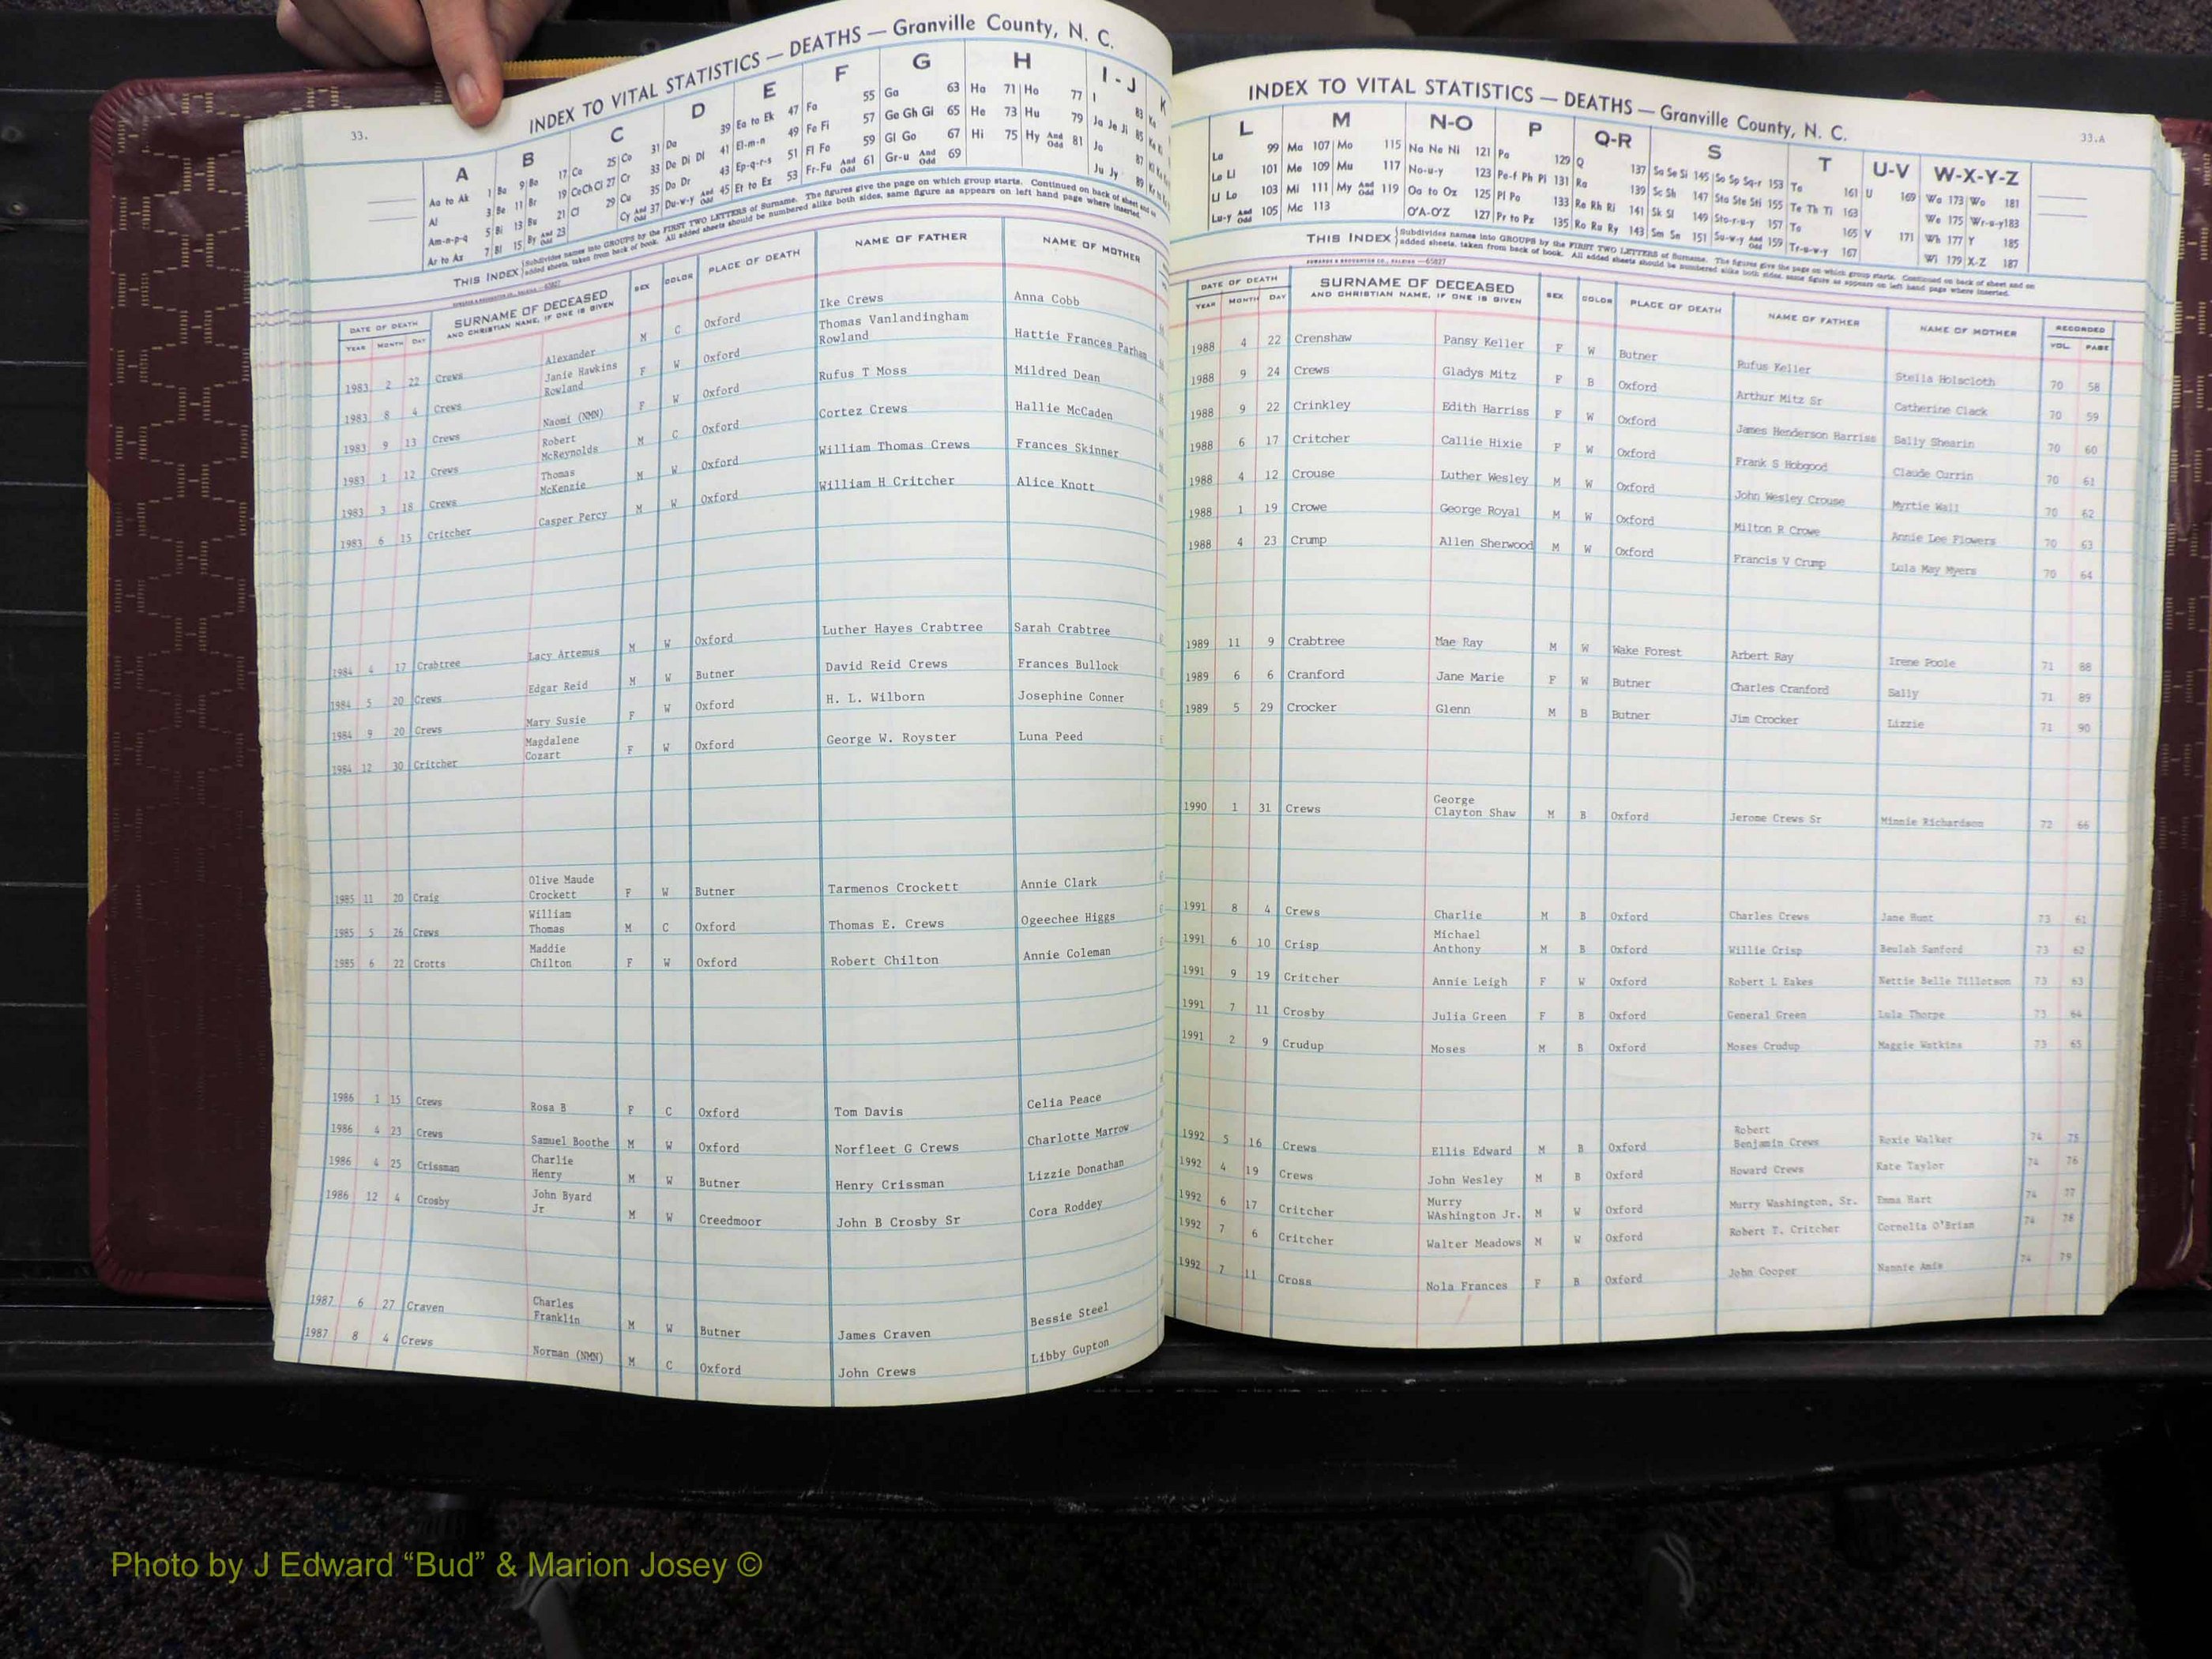 33.
INDEX TO VITAL STATISTICS — DEATHS — Granville County, N. C.
A B C D E F G H I-J K
Aa to Ak 1 Ba 9 Bo 17 Ca 25 Co 31 Da 39 Ea to Ek 47 Fa 55 Ga 63 Ha 71 Ho 77 I 83
Al 3 Be 11 Br 19 Ce Ch Cl 27 Cr 33 De Di Dl 41 El-m-n 49 Fe Fi 57 Ge Gh Gi 65 He 73 Hu 79 Ja Je Ji 85
Am-n-p-q 5 Bi 13 Bu 21 Cl 29 Cu 35 Do Dr 43 Ep-q-r-s 51 Fl Fo 59 Gl Go 67 Hi 75 Hy And Odd 81 Jo 87
Ar to Az 7 Bl 15 By And Odd 23 Cy And Odd 37 Du-w-y And Odd 45 Et to Ez 53 Fr-Fu And Odd 61 Gr-u And Odd 69 Ju Jy 89
THIS INDEX Subdivides names into GROUPS by the FIRST TWO LETTERS of Surname. The figures give the page on which group starts. Continued on back of sheet and on
added sheets, taken from back of book. All added sheets should be numbered alike both sides, same figure as appears on left hand page where inserted.
DATE OF DEATH SURNAME OF DECEASED SEX COLOR PLACE OF DEATH NAME OF FATHER NAME OF MOTHER
YEAR MONTH DAY AND CHRISTIAN NAME, IF ONE IS GIVEN
1983 2 22 Crews Alexander M C Oxford Ike Crews Anna Cobb
1983 8 4 Crews Janie Hawkins Rowland F W Oxford Thomas Vanlandingham Rowland Hattie Frances Parham
1983 9 13 Crews Naomi (NMN) F W Oxford Rufus T Moss Mildred Dean
1983 1 12 Crews Robert McReynolds M C Oxford Cortez Crews Hallie McCaden
1983 3 18 Crews Thomas McKenzie M W Oxford William Thomas Crews Frances Skinner
1983 6 15 Critcher Casper Percy M W Oxford William H Critcher Alice Knott
1984 4 17 Crabtree Lacy Artemus M W Oxford Luther Hayes Crabtree Sarah Crabtree
1984 5 20 Crews Edgar Reid M W Butner David Reid Crews Frances Bullock
1984 9 20 Crews Mary Susie F W Oxford H. L. Wilborn Josephine Conner
1984 12 30 Critcher Magdalene Cozart F W Oxford George W. Royster Luna Peed
1985 11 20 Craig Olive Maude Crockett F W Butner Tarmenos Crockett Annie Clark
1985 5 26 Crews William Thomas M C Oxford Thomas E. Crews Ogeechee Higgs
1985 6 22 Crotts Maddie Chilton F W Oxford Robert Chilton Annie Coleman
1986 1 15 Crews Rosa B F C Oxford Tom Davis Celia Peace
1986 4 23 Crews Samuel Boothe M W Oxford Norfleet G Crews Charlotte Marrow
1986 4 25 Crissman Charlie Henry M W Butner Henry Crissman Lizzie Donathan
1986 12 4 Crosby John Byard Jr M W Creedmoor John B Crosby Sr Cora Roddey
1987 6 27 Craven Charles Franklin M W Butner James Craven Bessie Steel
1987 8 4 Crews Norman (NMN) M C Oxford John Crews Libby Gupton
33.A
INDEX TO VITAL STATISTICS — DEATHS — Granville County, N. C.
L M N-O P Q-R S T U-V W-X-Y-Z
La 99 Ma 107 Mo 115 Na Ne Ni 121 Pa 129 Q 137 Sa Se Si 145 So Sp Sq-r 153 Ta 161 U 169 Wa 173 Wo 181
Le Ll 101 Me 109 Mu 117 No-u-y 123 Pe-f Ph Pi 131 Ra 139 Sc Sh 147 Sta Ste Sti 155 Te Th Ti 163 We 175 Wr-u-y 183
Li Lo 103 Mi 111 My And Odd 119 Oa to Ox 125 Pl Po 133 Re Rh Ri 141 Sk Sl 149 Sto-r-u-y 157 To 165 V 171 Wh 177 Y 185
Lu-y And Odd 105 Mc 113 O'A-O'Z 127 Pr to Pz 135 Ro Ru Ry 143 Sm Sn 151 Su-w-y And Odd 159 Tr-u-w-y 167 Wi 179 X-Z 187
THIS INDEX Subdivides names into GROUPS by the FIRST TWO LETTERS of Surname. The figures give the page on which group starts. Continued on back of sheet and on
added sheets, taken from back of book. All added sheets should be numbered alike both sides, same figure as appears on left hand page where inserted.
EDWARDS & BROUGHTON CO., RALEIGH —65827
DATE OF DEATH SURNAME OF DECEASED SEX COLOR PLACE OF DEATH NAME OF FATHER NAME OF MOTHER RECORDED
YEAR MONTH DAY AND CHRISTIAN NAME, IF ONE IS GIVEN VOL. PAGE
1988 4 22 Crenshaw Pansy Keller F W Butner Rufus Keller Stella Holscloth 70 58
1988 9 24 Crews Gladys Mitz F B Oxford Arthur Mitz Sr Catherine Clack 70 59
1988 9 22 Crinkley Edith Harriss F W Oxford James Henderson Harriss Sally Shearin 70 60
1988 6 17 Critcher Callie Hixie F W Oxford Frank S Hobgood Claude Currin 70 61
1988 4 12 Crouse Luther Wesley M W Oxford John Wesley Crouse Myrtie Wall 70 62
1988 1 19 Crowe George Royal M W Oxford Milton R Crowe Annie Lee Flowers 70 63
1988 4 23 Crump Allen Sherwood M W Oxford Francis V Crump Lula May Myers 70 64
1989 11 9 Crabtree Mae Ray M W Wake Forest Arbert Ray Irene Poole 71 88
1989 6 6 Cranford Jane Marie F W Butner Charles Cranford Sally 71 89
1989 5 29 Crocker Glenn M B Butner Jim Crocker Lizzie 71 90
1990 1 31 Crews George Clayton Shaw M B Oxford Jerome Crews Sr Minnie Richardson 72 66
1991 8 4 Crews Charlie M B Oxford Charles Crews Jane Hunt 73 61
1991 6 10 Crisp Michael Anthony M B Oxford Willie Crisp Beulah Sanford 73 62
1991 9 19 Critcher Annie Leigh F W Oxford Robert L Eakes Nettie Belle Tillotson 73 63
1991 7 11 Crosby Julia Green F B Oxford General Green Lula Thorpe 73 64
1991 2 9 Crudup Moses M B Oxford Moses Crudup Maggie Watkins 73 65
1992 5 16 Crews Ellis Edward M B Oxford Robert Benjamin Crews Roxie Walker 74 75
1992 4 19 Crews John Wesley M B Oxford Howard Crews Kate Taylor 74 76
1992 6 17 Critcher Murry WAshington Jr. M W Oxford Murry Washington, Sr. Emma Hart 74 77
1992 7 6 Critcher Walter Meadows M W Oxford Robert T. Critcher Cornelia O'Brian 74 78
1992 7 11 Cross Nola Frances F B Oxford John Cooper Nannie Amis 74 79
Photo by J Edward “Bud” & Marion Josey ©